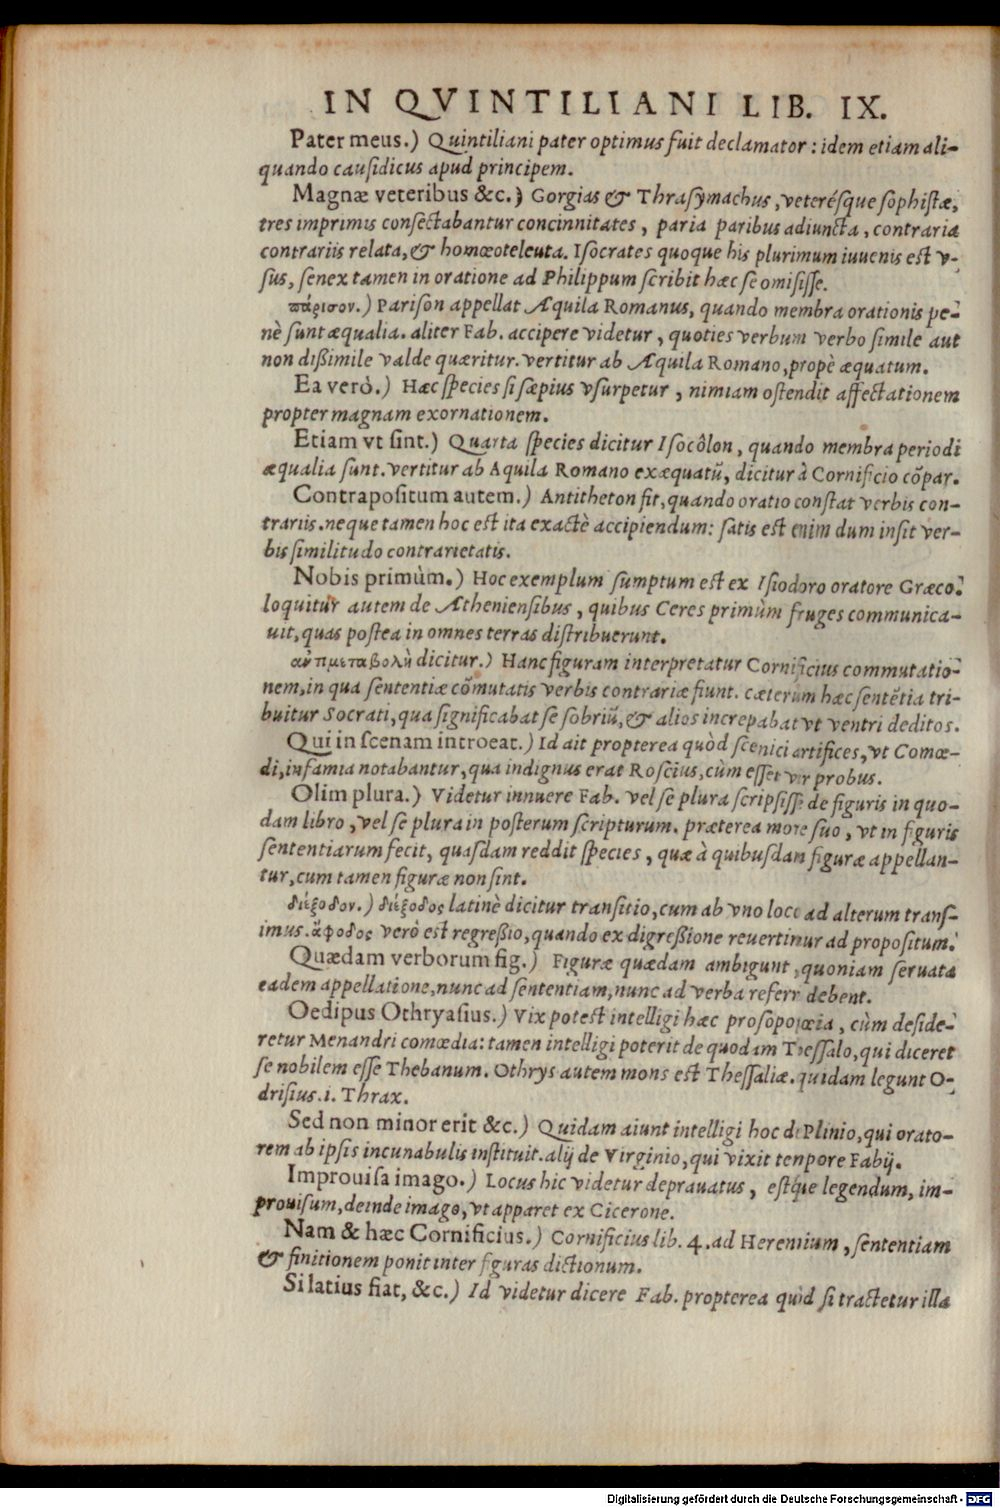 IN QVINTILIANI LIB. IX.
Pater meus.) Quintiliani pater optimus fuit declamator: idem etiam ali-
quando causidicus apud principem.
Magnæ veteribus &c.) Gorgias & Thrasymachus, veterésque sophistæ,
tres imprimis consectabantur concinnitates, paria paribus adiuncta, contraria
contrariis relata, & homœoteleuta. Isocrates quoque his plurimum iuuenis est v-
sus, senex tamen in oratione ad Philippum scribit hæc se omisisse.
πάρισον.) Parison appellat Æquila Romanus, quando membra orationis pe-
nè sunt æqualia. aliter Fab. accipere videtur, quoties verbum verbo simile aut
non dißimile valde quæritur. vertitur ab Æquila Romano, propè æquatum.
Ea verò.) Hæc species si sæpius vsurpetur, nimiam ostendit affectationem
propter magnam exornationem.
Etiam vt sint.) Quarta species dicitur Isocôlon, quando membra periodi
æqualia sunt. vertitur ab Aquila Romano exæquatũ, dicitur à Cornificio cõpar.
Contrapositum autem.) Antitheton fit, quando oratio constat verbis con-
trariis. neque tamen hoc est ita exactè accipiendum: satis est enim dum insit ver-
bis similitudo contrarietatis.
Nobis primùm.) Hoc exemplum sumptum est ex Isiodoro oratore Græco.
loquitur autem de Atheniensibus, quibus Ceres primùm fruges communica-
uit, quas postea in omnes terras distribuerunt.
αντιμεταβολὴ dicitur.) Hanc figuram interpretatur Cornificius commutatio-
nem, in qua sententiæ cõmutatis verbis contrariæ fiunt. cæterùm hæc sentẽtia tri-
buitur Socrati, qua significabat se sobriũ, & alios increpabat vt ventri deditos.
Qui in scenam introeat.) Id ait propterea quòd scenici artifices, vt Comœ-
di, infamia notabantur, qua indignus erat Roscius, cùm esset vir probus.
Olim plura.) Videtur innuere Fab. vel se plura scripsisse de figuris in quo-
dam libro, vel se plura in posterum scripturum. præterea more suo, vt in figuris
sententiarum fecit, quasdam reddit species, quæ à quibusdam figuræ appellan-
tur, cum tamen figuræ non sint.
διέξοδον.) διέξοδος latinè dicitur transitio, cum ab vno loco ad alterum trans-
imus. ἄφοδος verò est regreßio, quando ex digreßione reuertimur ad propositum.
Quædam verborum fig.) Figuræ quædam ambigunt, quoniam seruata
eadem appellatione, nunc ad sententiam, nunc ad verba referri debent.
Oedipus Othryasius.) Vix potest intelligi hæc prosopopœia, cùm deside-
retur Menandri comœdia: tamen intelligi poterit de quodam Thessalo, qui diceret
se nobilem esse Thebanum. Othrys autem mons est Thessaliæ. quidam legunt O-
drisius .i. Thrax.
Sed non minor erit &c.) Quidam aiunt intelligi hoc de Plinio, qui orato-
rem ab ipsis incunabulis instituit. alij de Virginio, qui vixit tempore Fabij.
Improuisa imago.) Locus hic videtur deprauatus, estque legendum, im-
prouisum, deinde imago, vt apparet ex Cicerone.
Nam & hæc Cornificius.) Cornificius lib. 4. ad Herennium, sententiam
& finitionem ponit inter figuras dictionum.
Si latius fiat, &c.) Id videtur dicere Fab. propterea quòd si tractetur illa
Digitalisierung gefördert durch die Deutsche Forschungsgemeinschaft - DFG